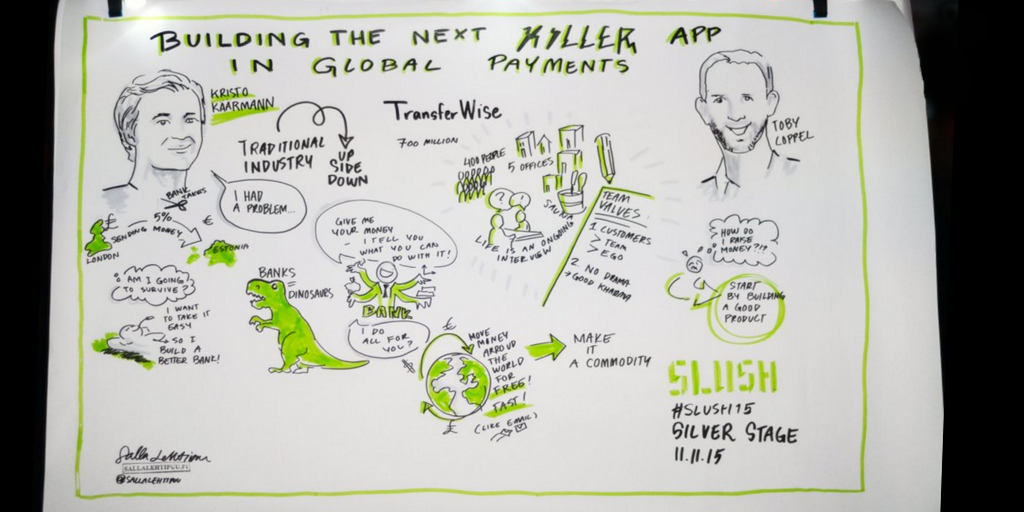 BUILDING THE NEXT KILLER APP
IN GLOBAL PAYMENTS
KRISTO
KAARMANN
TRADITIONAL
INDUSTRY
UP
SIDE
DOWN
TransferWise
700 MILLION
400 PEOPLE
5 OFFICES
SAUNA
LIFE IS AN ONGOING
INTERVIEW
TEAM
VALUES:
1 CUSTOMERS
> TEAM
> EGO
2 NO DRAMA
→ GOOD KHARMA
TOBY
COPPEL
I HAD
A PROBLEM...
BANK
TAKES
5%
£
€
SENDING MONEY
LONDON
ESTONIA
AM I GOING
TO SURVIVE?
I WANT
TO TAKE IT
EASY
→ SO I
BUILD A
BETTER BANK!
BANKS
=
DINOSAURS
GIVE ME
YOUR MONEY
I TELL YOU
WHAT YOU CAN
DO WITH IT!
BANK
I DO
ALL FOR
YOU?
£
MOVE
MONEY
AROUD
THE
WORLD
FOR
FREE!
FAST!
(LIKE EMAIL)
£
MAKE
IT
A COMMODITY
HOW DO
I RAISE
MONEY?!?
START
BY BUILDING
A GOOD
PRODUCT
SLUSH
#SLUSH15
SILVER STAGE
11.11.15
Salla Lehtipuu
SALLALEHTIPUU.FI
@SALLALEHTIPUU